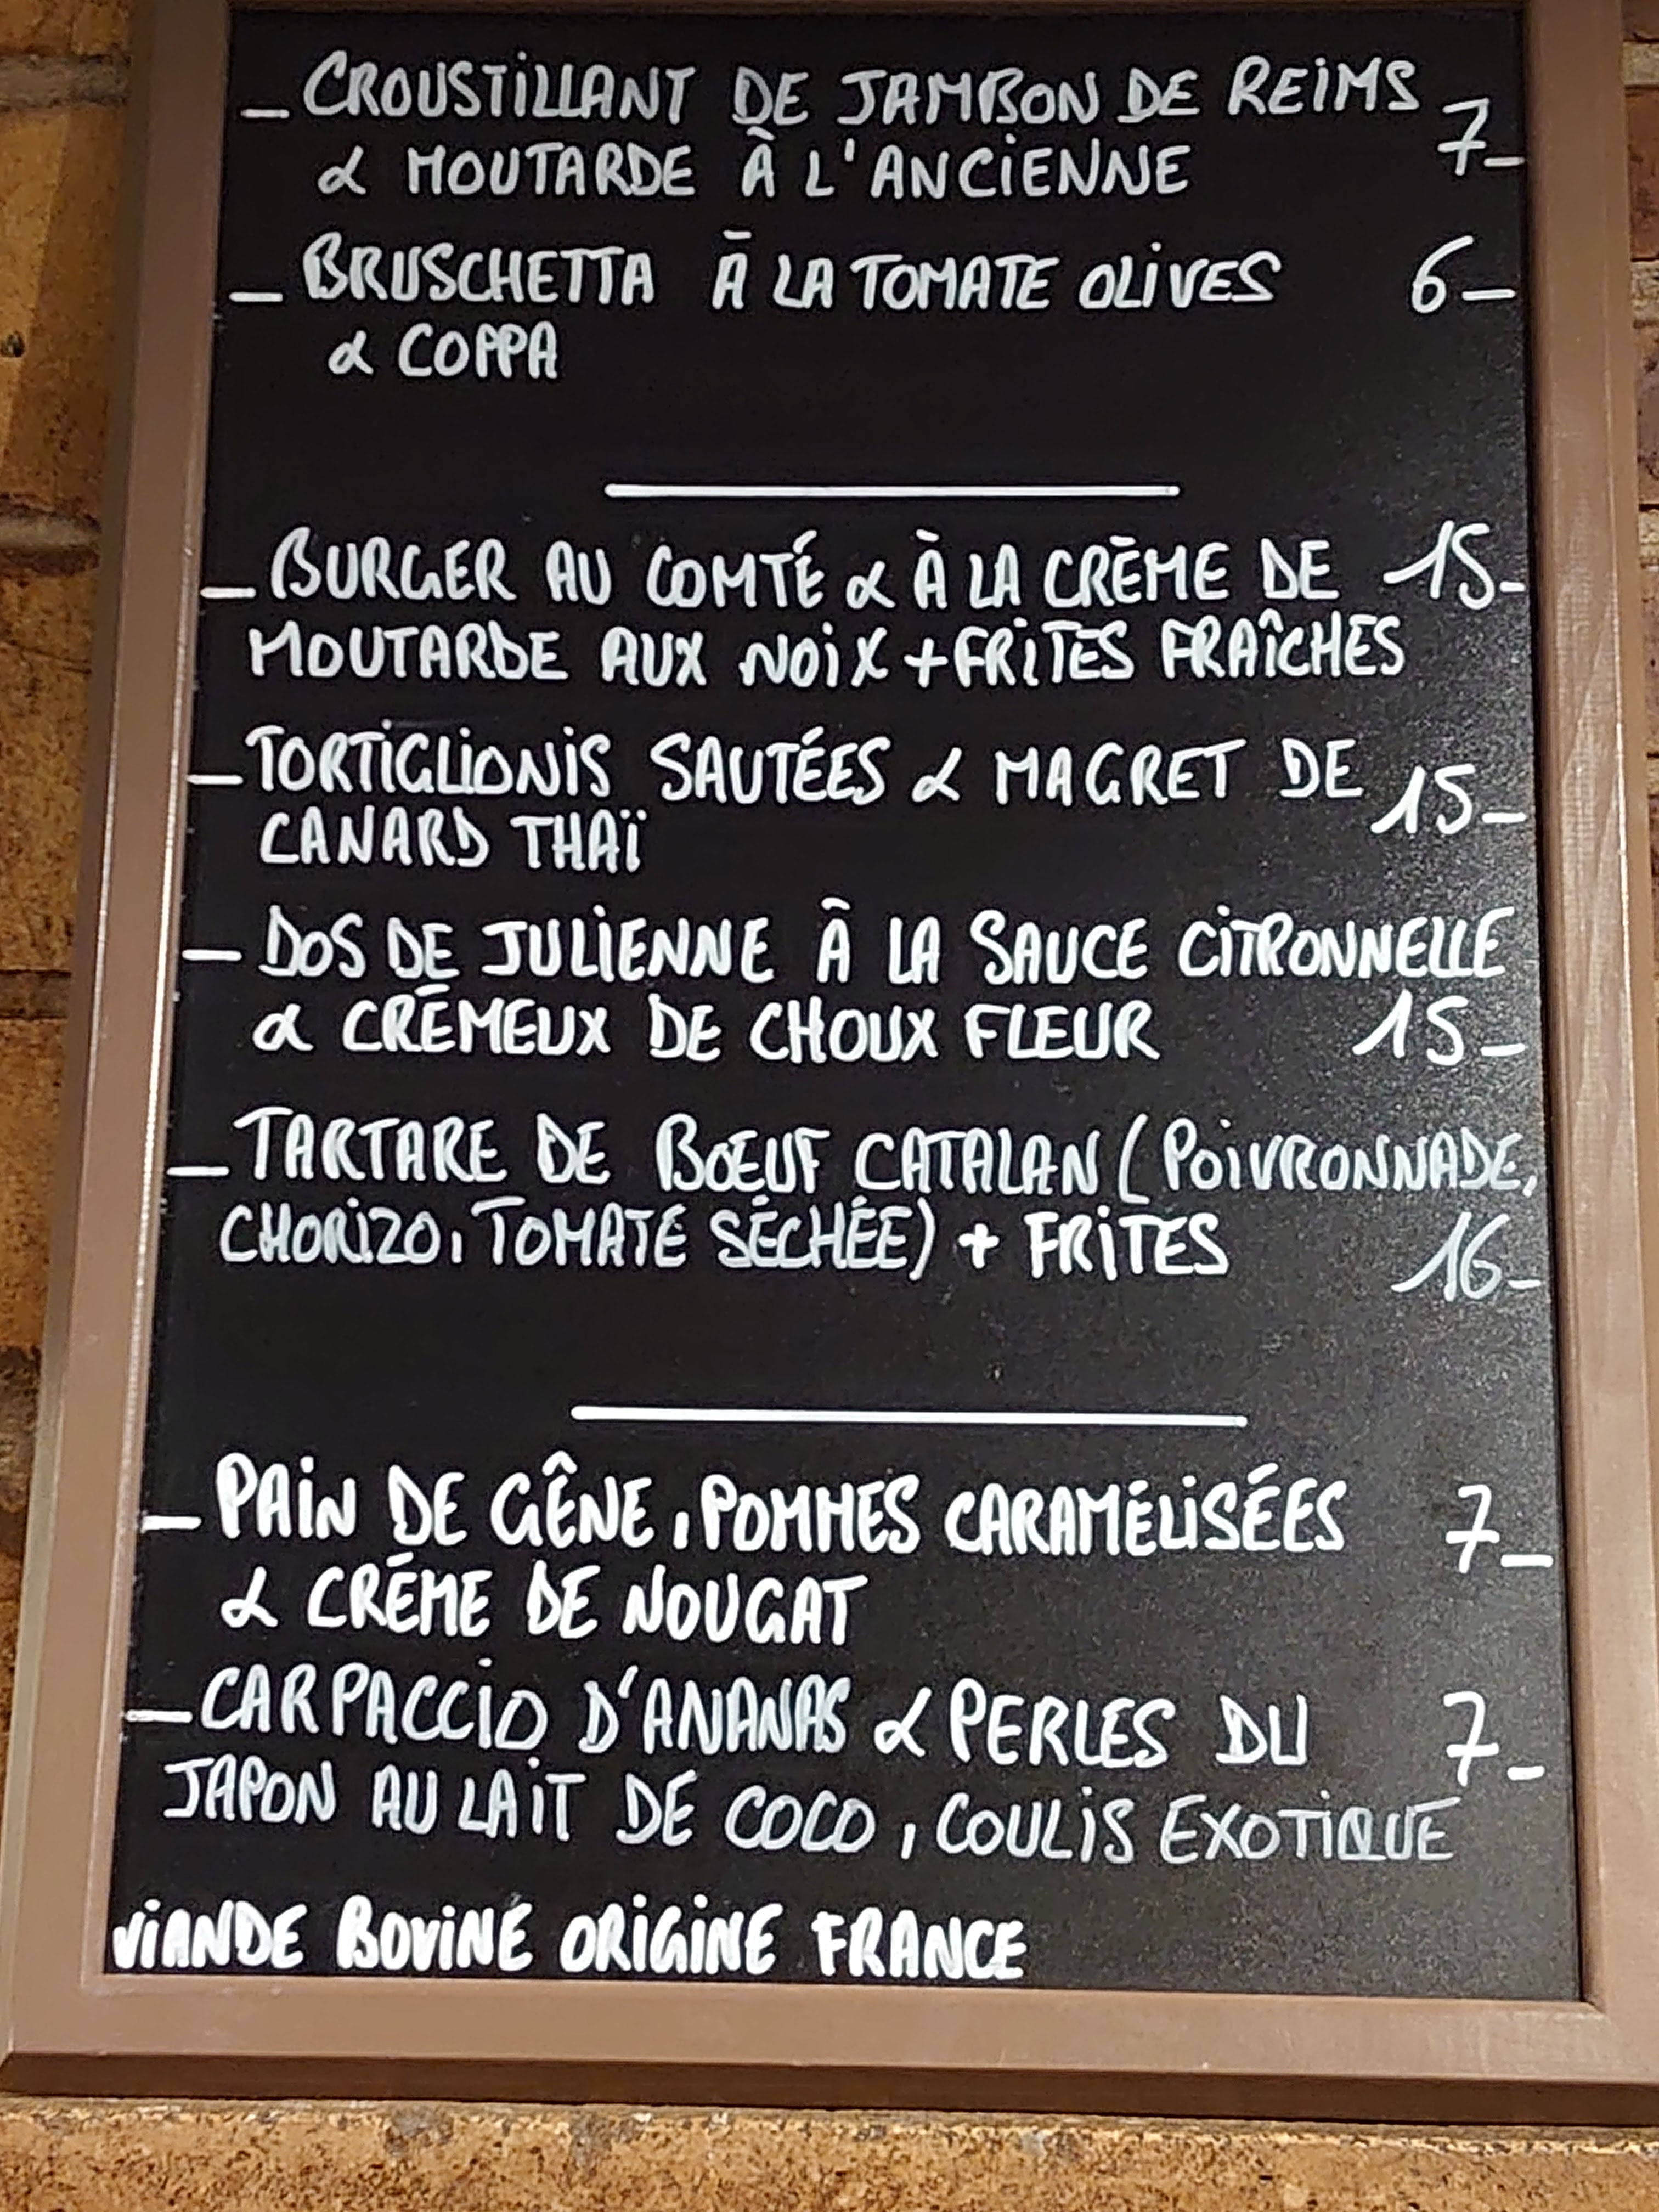 _ CROUSTILLANT DE JAMBON DE REIMS 7_
& MOUTARDE À L'ANCIENNE
_ BRUSCHETTA À LA TOMATE OLIVES 6_
& COPPA
_ BURGER AU COMTÉ & À LA CRÈME DE 15_
MOUTARDE AUX NOIX + FRITES FRAÎCHES
_ TORTIGLIONIS SAUTÉES & MAGRET DE 15_
CANARD THAÏ
_ DOS DE JULIENNE À LA SAUCE CITRONNELLE
& CRÉMEUX DE CHOUX FLEUR 15_
_ TARTARE DE BŒUF CATALAN (POIVRONNADE,
CHORIZO, TOMATE SÉCHÉE) + FRITES 16_
_ PAIN DE GÊNE, POMMES CARAMÉLISÉES 7_
& CRÉME DE NOUGAT
_ CARPACCIO D'ANANAS & PERLES DU 7_
JAPON AU LAIT DE COCO, COULIS EXOTIQUE
VIANDE BOVINE ORIGINE FRANCE